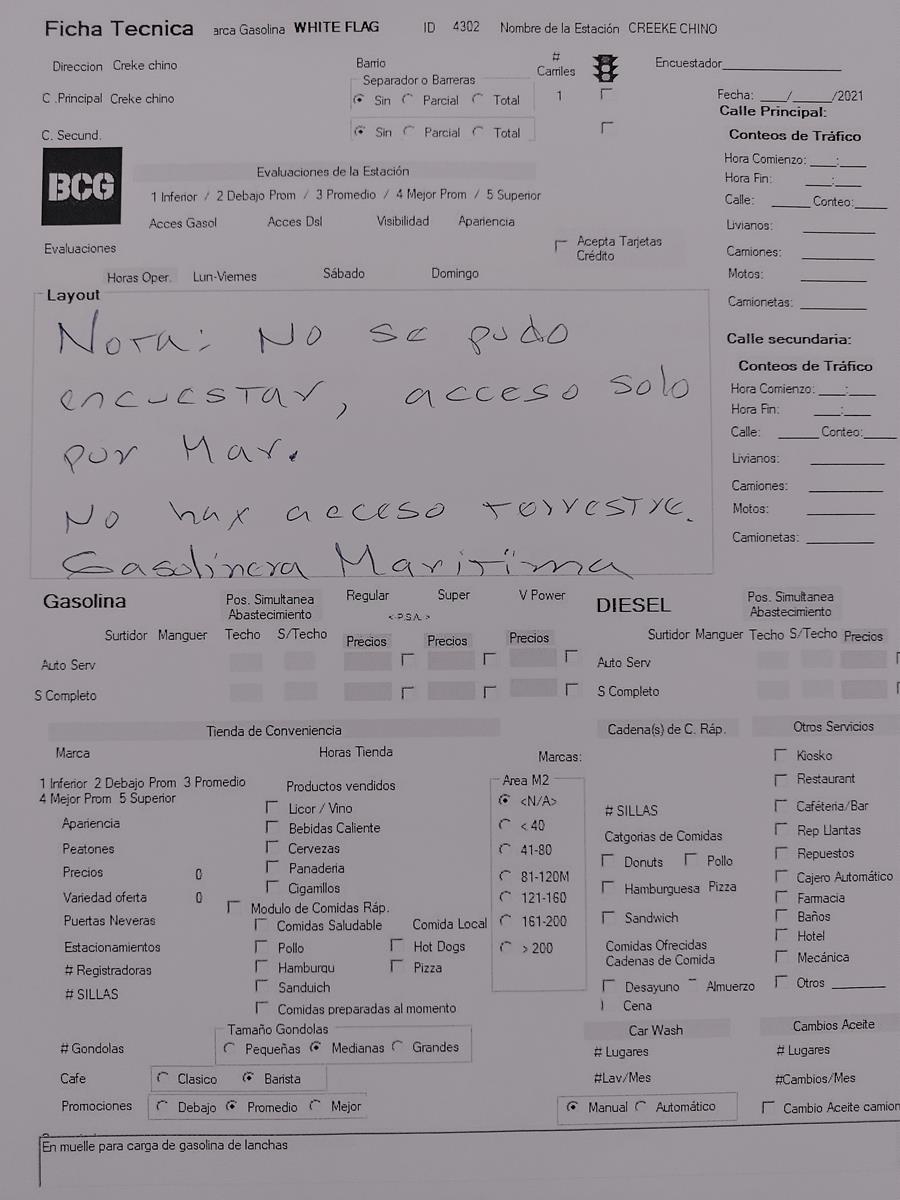 Ficha Tecnica arca Gasolina WHITE FLAG ID 4302 Nombre de la Estación CREEKE CHINO
Direccion Creke chino Barrio # Carriles Encuestador
Separador o Barreras
C .Principal Creke chino Sin Parcial Total 1 Fecha: ___/_____/2021
Calle Principal:
C. Secund. Sin Parcial Total
Conteos de Tráfico
BCG
Evaluaciones de la Estación
Hora Comienzo: ____:____
1 Inferior / 2 Debajo Prom / 3 Promedio / 4 Mejor Prom / 5 Superior
Hora Fin: ____:____
Calle: ______ Conteo:_____
Acces Gasol Acces Dsl Visibilidad Apariencia
Livianos:
Evaluaciones Acepta Tarjetas Crédito
Camiones:
Horas Oper. Lun-Viernes Sábado Domingo
Motos:
Camionetas:
Layout
Nota: No se pudo
encuestar, acceso solo
por Mar.
No hax acceso torrestre.
Gasolinera Maritima
Calle secundaria:
Conteos de Tráfico
Hora Comienzo: ____:____
Hora Fin: ____:____
Calle: ______ Conteo:_____
Livianos:
Camiones:
Motos:
Camionetas:
Gasolina Pos. Simultanea Abastecimiento Regular Super V Power
<-P.S.A.->
Surtidor Manguer Techo S/Techo Precios Precios Precios
Auto Serv
S Completo
DIESEL Pos. Simultanea Abastecimiento
Surtidor Manguer Techo S/Techo Precios
Auto Serv
S Completo
Tienda de Conveniencia
Marca Horas Tienda
1 Inferior 2 Debajo Prom 3 Promedio
4 Mejor Prom 5 Superior
Apariencia
Peatones
Precios 0
Variedad oferta 0
Puertas Neveras
Estacionamientos
# Registradoras
# SILLAS
Productos vendidos
Licor / Vino
Bebidas Caliente
Cervezas
Panaderia
Cigarrillos
Modulo de Comidas Ráp.
Comidas Saludable Comida Local
Pollo Hot Dogs
Hamburgu Pizza
Sanduich
Comidas preparadas al momento
Marcas:
Area M2
<N/A>
< 40
41-80
81-120M
121-160
161-200
> 200
Cadena(s) de C. Ráp.
# SILLAS
Catgorias de Comidas
Donuts Pollo
Hamburguesa Pizza
Sandwich
Comidas Ofrecidas
Cadenas de Comida
Desayuno Almuerzo
Cena
Otros Servicios
Kiosko
Restaurant
Caféteria/Bar
Rep Llantas
Repuestos
Cajero Automático
Farmacia
Baños
Hotel
Mecánica
Otros
Tamaño Gondolas
# Gondolas Pequeñas Medianas Grandes
Cafe Clasico Barista
Promociones Debajo Promedio Mejor
Car Wash
# Lugares
#Lav/Mes
Manual Automático
Cambios Aceite
# Lugares
#Cambios/Mes
Cambio Aceite camion
En muelle para carga de gasolina de lanchas